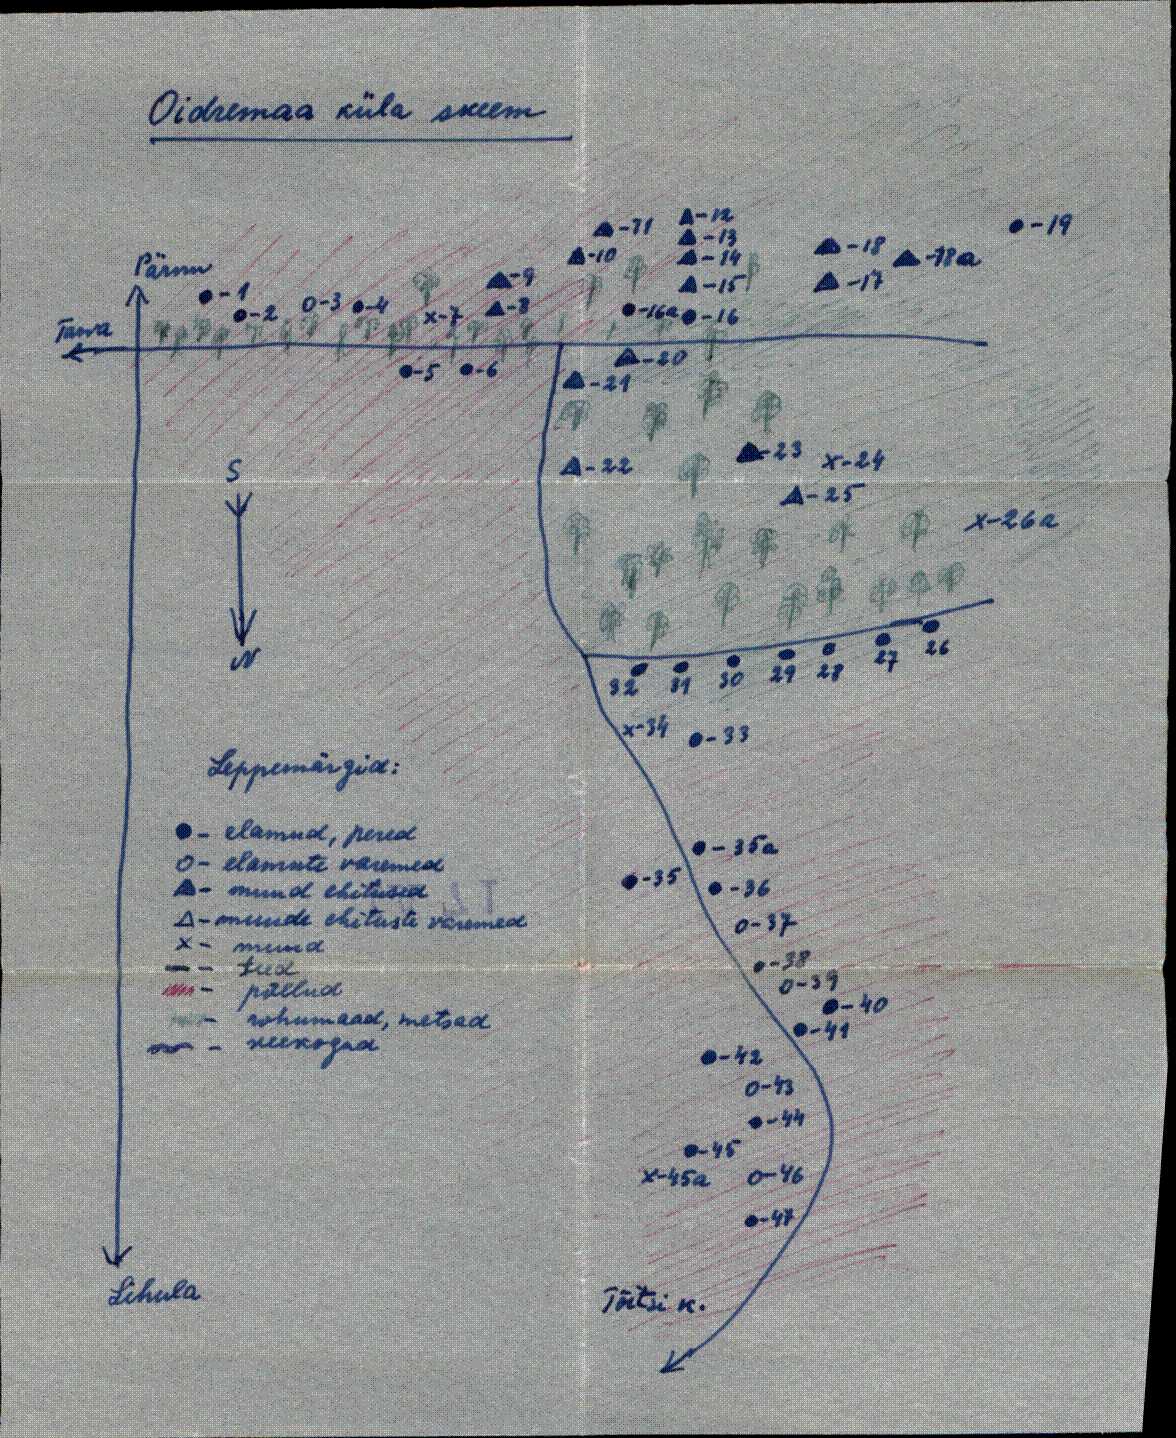 Oidremaa küla skeem
Pärnu
Tarva
●-1
●-2
o-3
●-4
●-5
●-6
x-7
▲-8
▲-9
▲-10
▲-11
▲-12
▲-13
▲-14
▲-15
●-16a
●-16
▲-17
▲-18
▲-18a
●-19
▲-20
▲-21
▲-22
▲-23
x-24
▲-25
x-26a
S
N
32 31 30 29 28 27 26
x-34
●-33
Leppemärgid:
●- elamud, pered
o- elamute varemed
▲- muud ehitused
△- muude ehituste varemed
x- muud
— - teed
- põllud
- rohumaad, metsad
- veekogud
●-35a
●-35
●-36
o-37
●-38
o-39
●-40
●-41
●-42
o-43
●-44
●-45
x-45a
o-46
●-47
Lihula
Tõitsi k.